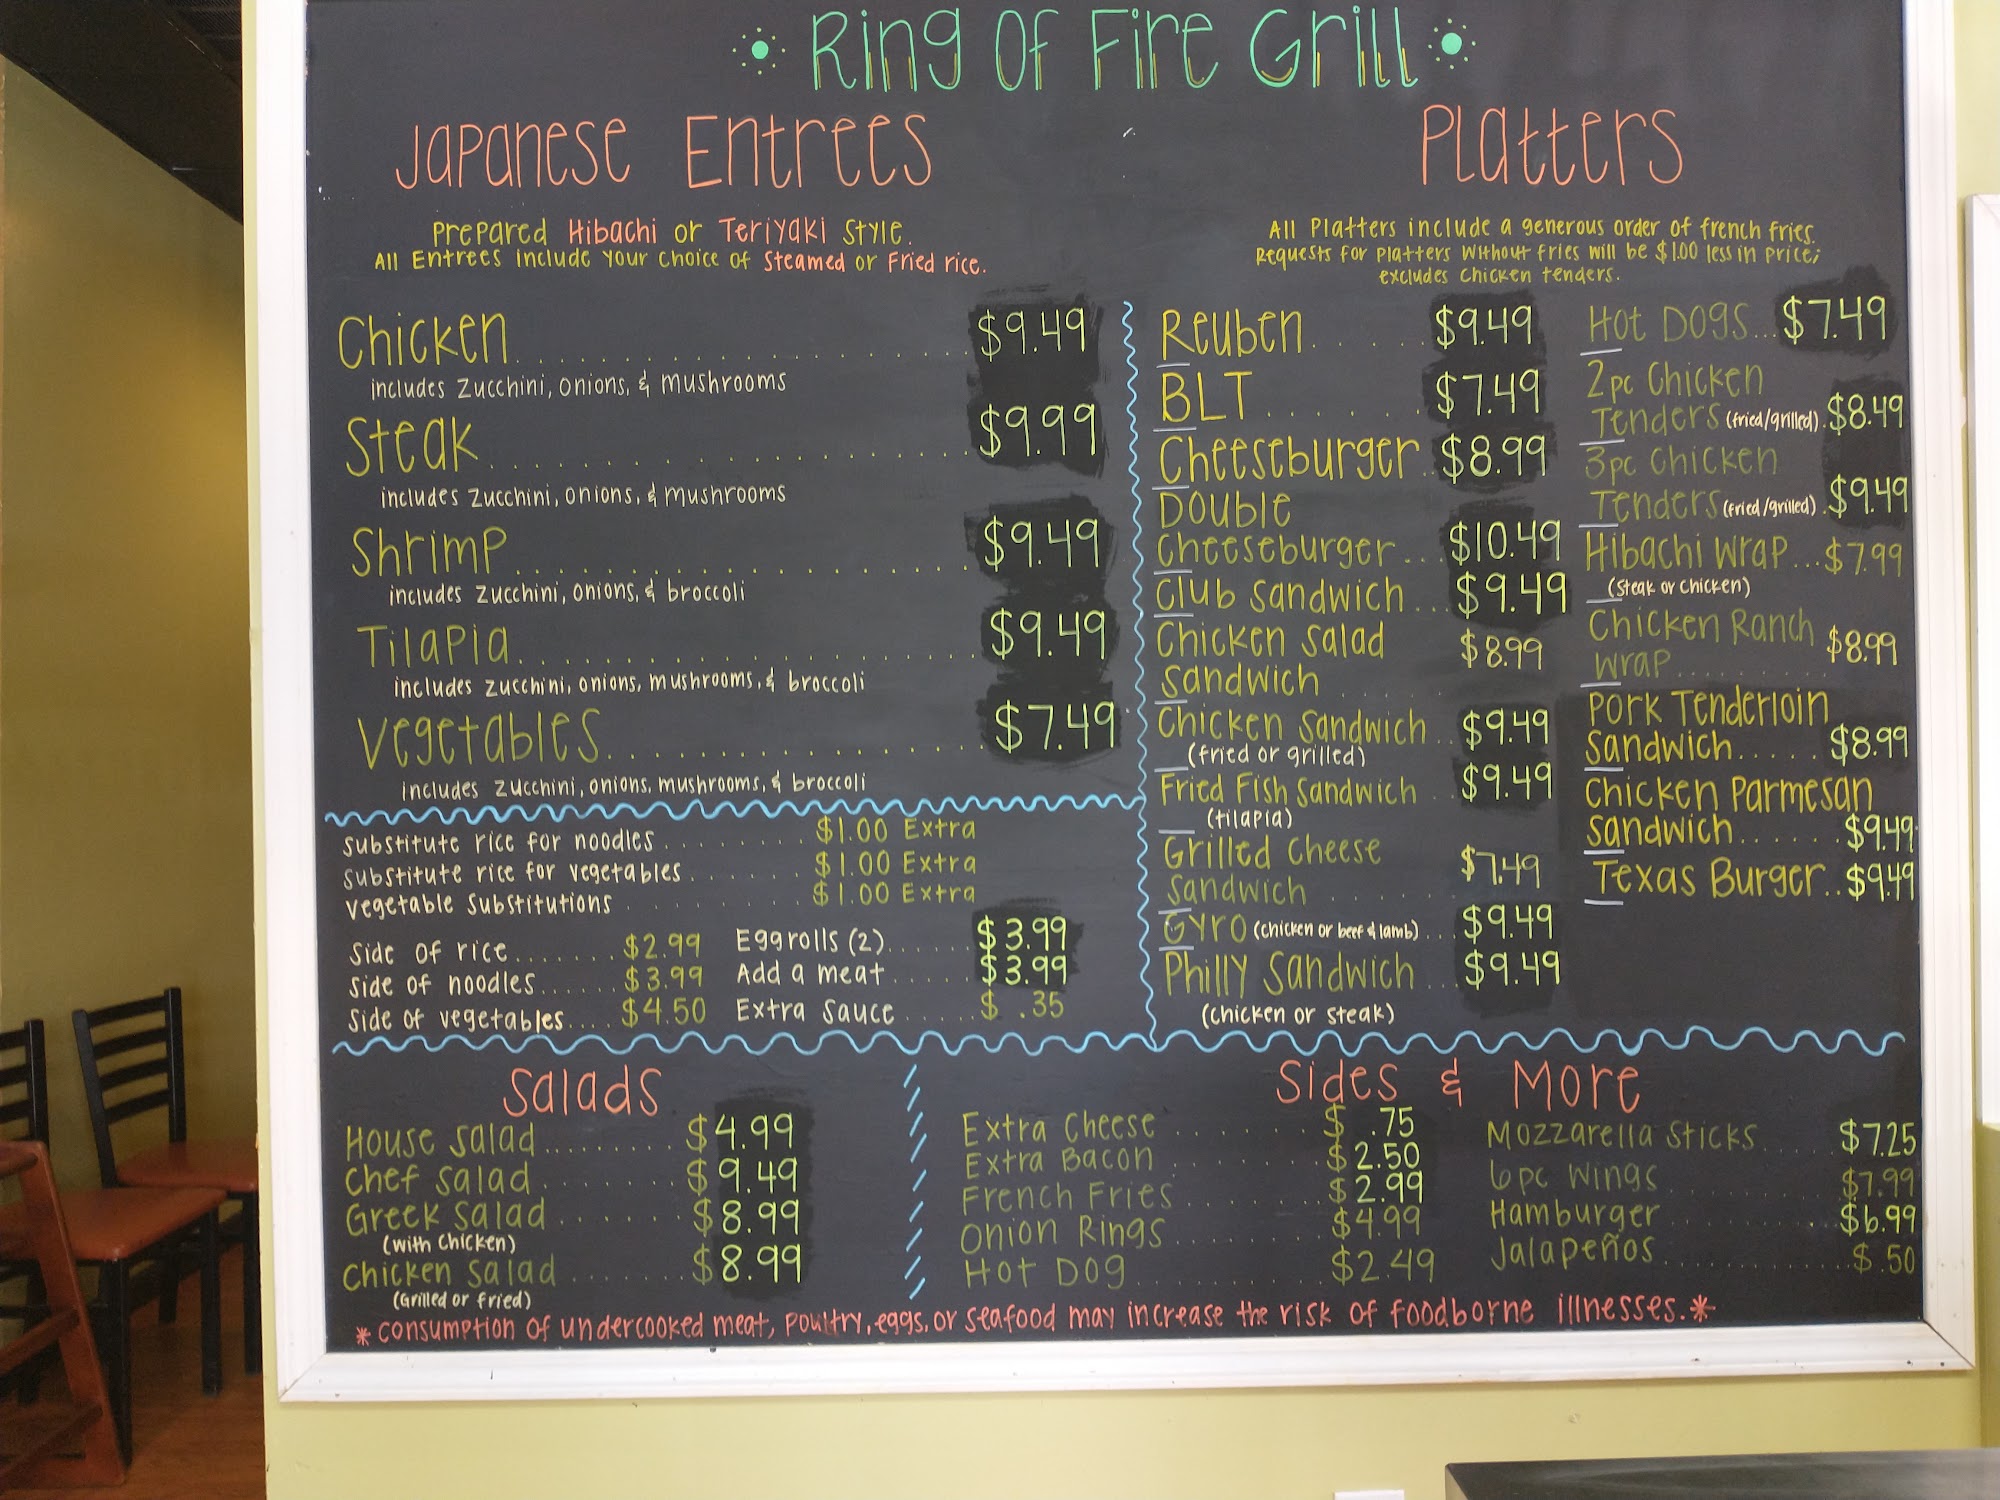 Ring Of Fire Grill
Japanese Entrees
Prepared Hibachi or Teriyaki Style.
All Entrees include your choice of Steamed or Fried rice.
Chicken.................... $9.49
includes zucchini, onions, & mushrooms
Steak.................... $9.99
includes zucchini, onions, & mushrooms
Shrimp.................... $9.49
includes zucchini, onions, & broccoli
Tilapia.................... $9.49
includes zucchini, onions, mushrooms, & broccoli
Vegetables.................... $7.49
includes zucchini, onions, mushrooms, & broccoli
substitute rice for noodles........ $1.00 Extra
substitute rice for vegetables...... $1.00 Extra
vegetable substitutions ......... $1.00 Extra
side of rice....... $2.99
side of noodles...... $3.99
side of vegetables.... $4.50
Eggrolls (2)...... $3.99
Add a meat..... $3.99
Extra sauce ...... $ .35
Platters
All Platters include a generous order of french fries.
Requests for platters without fries will be $1.00 less in price;
excludes chicken tenders.
Reuben...... $9.49
BLT...... $7.49
Cheeseburger $8.99
Double
Cheeseburger... $10.49
Club Sandwich... $9.49
Chicken Salad $8.99
Sandwich ......
Chicken Sandwich .. $9.49
(fried or grilled)
Fried Fish Sandwich .. $9.49
(tilapia)
Grilled Cheese $7.49
Sandwich ......
Gyro (chicken or beef & lamb) ... $9.49
Philly Sandwich ... $9.49
(chicken or steak)
Hot Dogs... $7.49
2pc Chicken
Tenders (fried/grilled). $8.49
3pc Chicken
Tenders (fried/grilled). $9.49
Hibachi Wrap... $7.99
(steak or chicken)
Chicken Ranch $8.99
Wrap..........
Pork Tenderloin
Sandwich...... $8.99
Chicken Parmesan
Sandwich...... $9.49
Texas Burger.. $9.49
Salads
House Salad........ $4.99
Chef Salad ........ $9.49
Greek Salad ....... $8.99
(with chicken)
Chicken Salad ....... $8.99
(Grilled or fried)
Sides & More
Extra Cheese ........ $ .75
Extra Bacon ........ $2.50
French Fries ........ $2.99
Onion Rings ........ $4.99
Hot Dog ........ $2.49
Mozzarella Sticks ..... $7.25
6pc Wings ........ $7.99
Hamburger ........ $6.99
Jalapeños ........ $.50
*consumption of undercooked meat, poultry, eggs, or seafood may increase the risk of foodborne illnesses.*